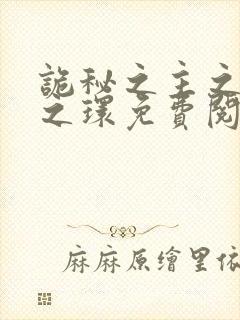 詭秘之主之
之環免費閱
麻麻原繪里依